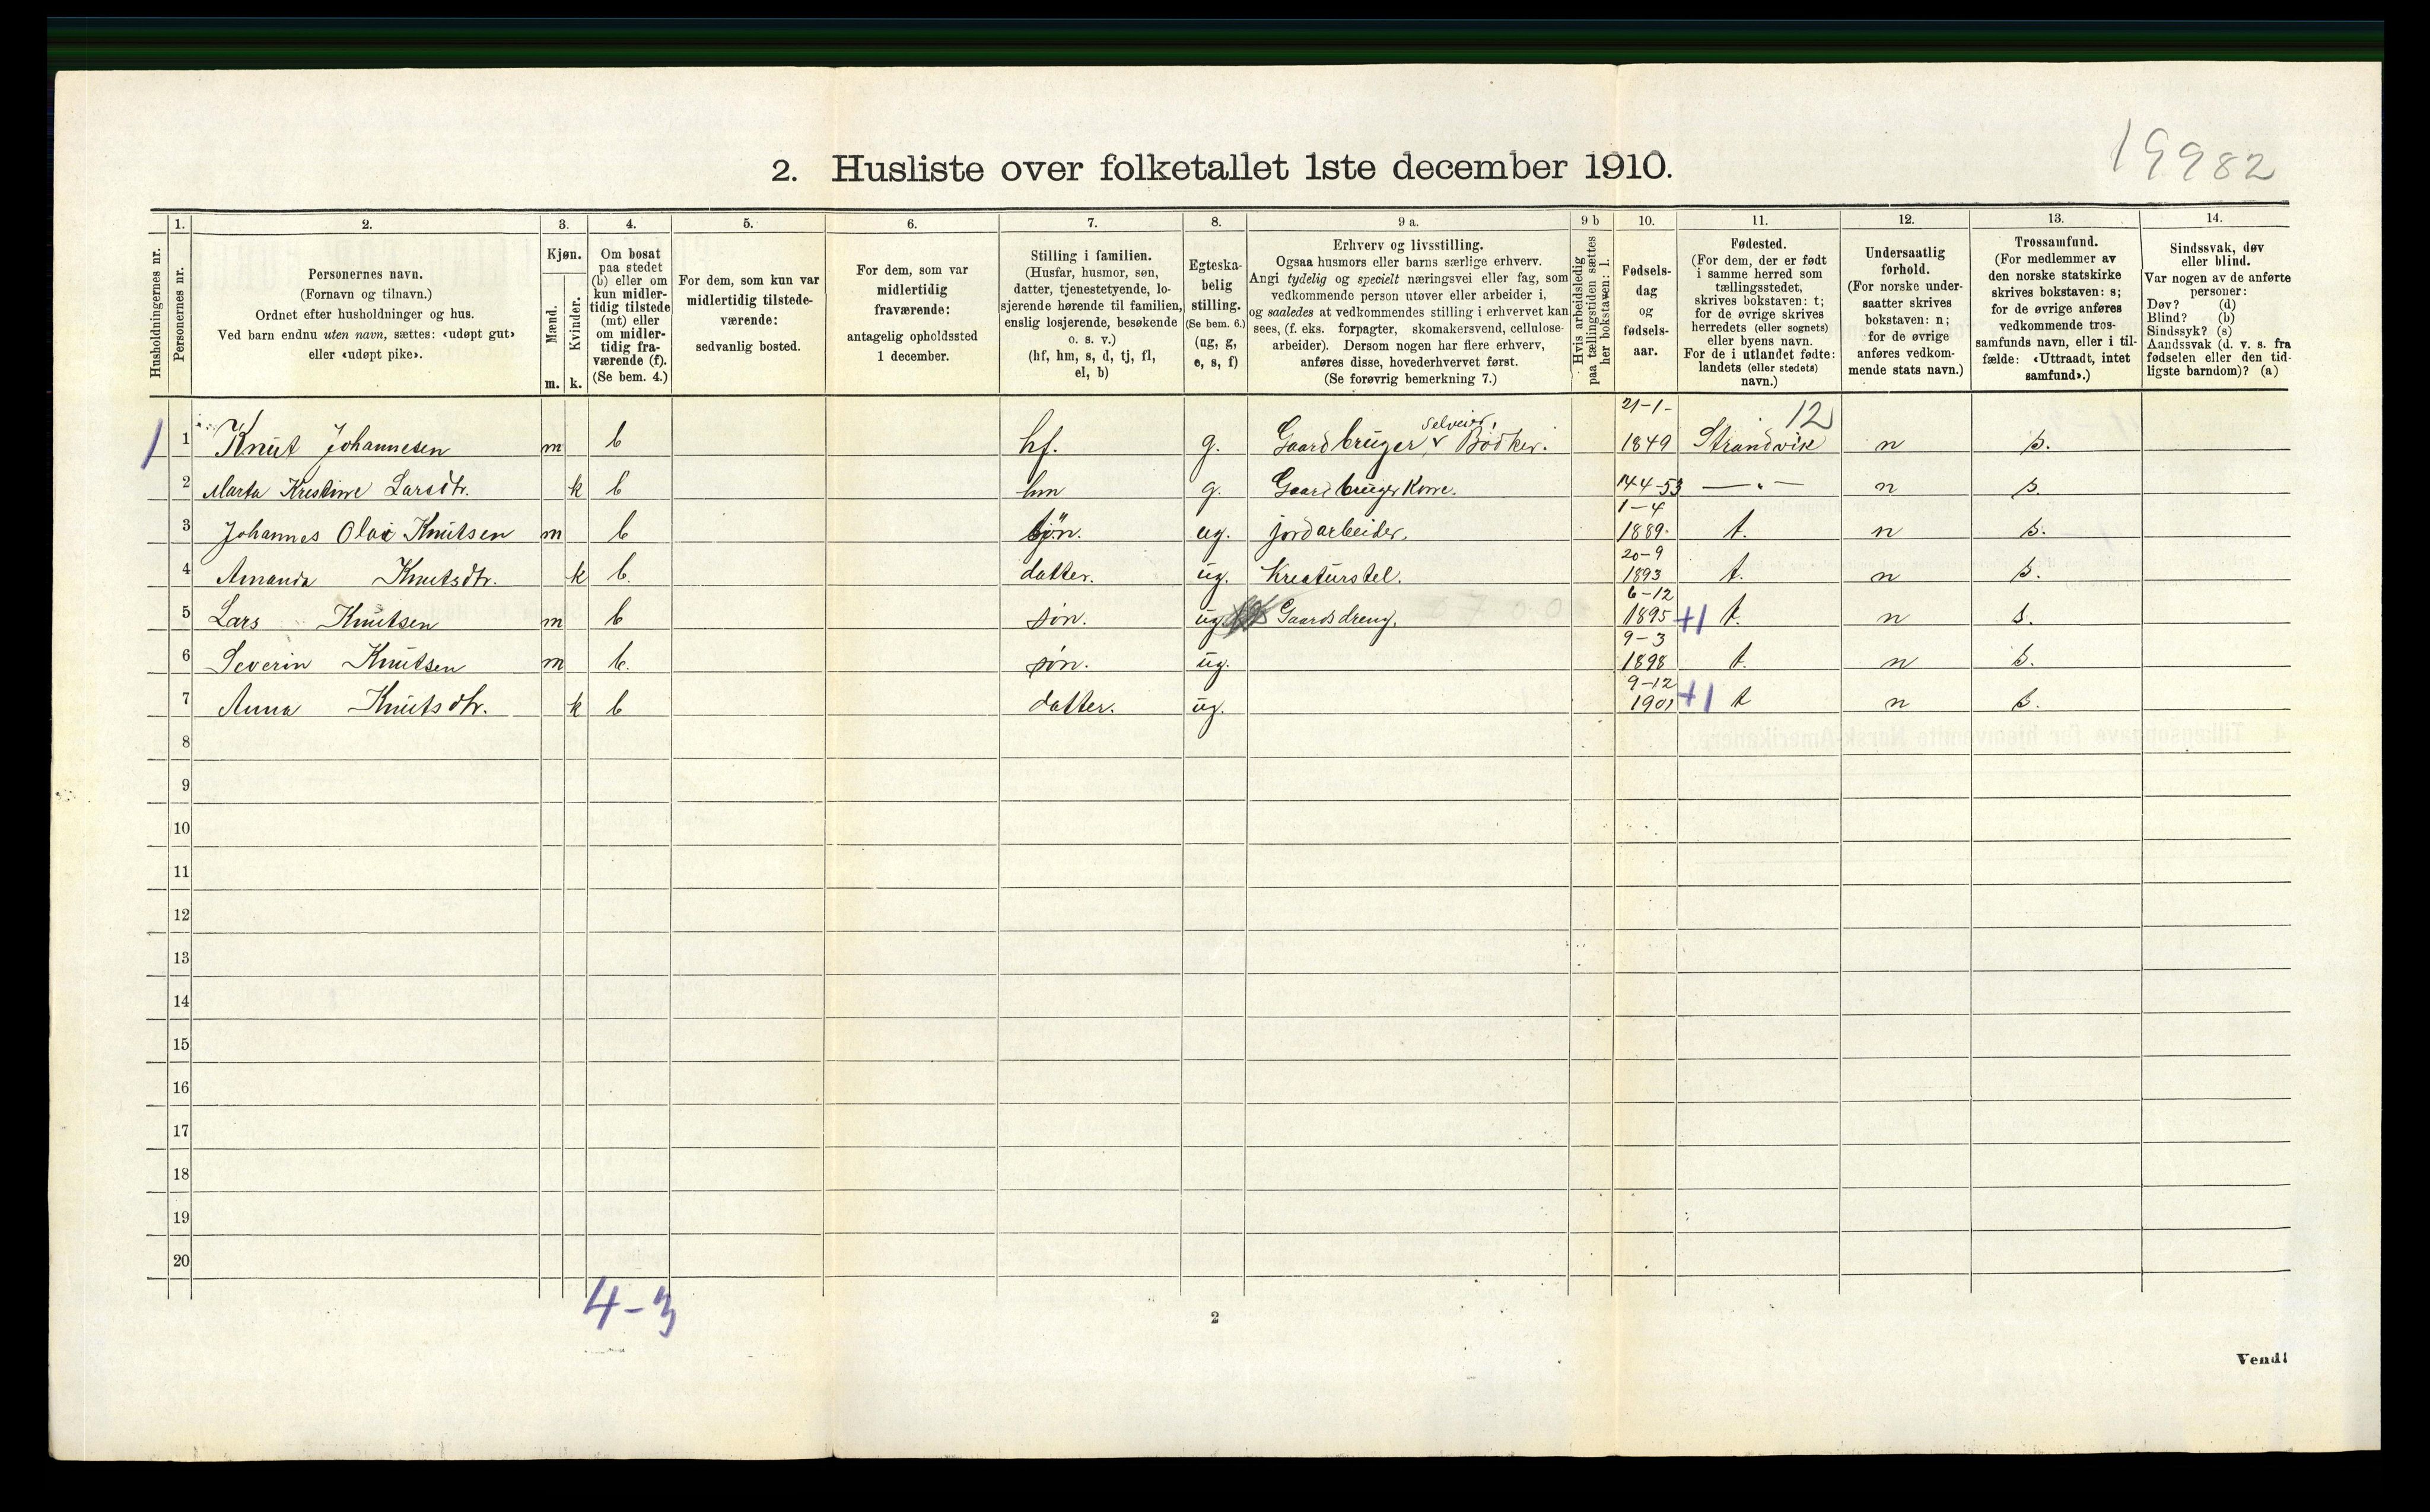 19982
2. Husliste over folketallet 1ste december 1910.
Husholdningernes nr.
1.
Personernes nr.
2.
Personernes navn.
(Fornavn og tilnavn.)
Ordnet efter husholdninger og hus.
Ved barn endnu uten navn, sættes: «udøpt gut»
eller «udøpt pike».
3.
Kjøn.
Mænd.
m.
Kvinder.
k.
4.
Om bosat
paa stedet
(b) eller om
kun midler-
tidig tilstede
(mt) eller
om midler-
tidig fra-
værende (f).
(Se bem. 4.)
5.
For dem, som kun var
midlertidig tilstede-
værende:
sedvanlig bosted.
6.
For dem, som var
midlertidig
fraværende:
antagelig opholdssted
1 december.
7.
Stilling i familien.
(Husfar, husmor, søn,
datter, tjenestetyende, lo-
sjerende hørende til familien,
enslig losjerende, besøkende
o. s. v.)
(hf, hm, s, d, tj, fl,
el, b)
8.
Egteska-
belig
stilling.
(Se bem. 6.)
(ug, g,
e, s, f)
9 a.
Erhverv og livsstilling.
Ogsaa husmors eller barns særlige erhverv.
Angi tydelig og specielt næringsvei eller fag, som
vedkommende person utøver eller arbeider i,
og saaledes at vedkommendes stilling i erhvervet kan
sees, (f. eks. forpagter, skomakersvend, cellulose-
arbeider). Dersom nogen har flere erhverv,
anføres disse, hovederhvervet først.
(Se forøvrig bemerkning 7.)
9 b
Hvis arbeidsledig
paa tællingstiden sættes
her bokstaven: l.
10.
Fødsels-
dag
og
fødsels-
aar.
11.
Fødested.
(For dem, der er født
i samme herred som
tællingsstedet,
skrives bokstaven: t;
for de øvrige skrives
herredets (eller sognets)
eller byens navn.
For de i utlandet fødte:
landets (eller stedets)
navn.)
12.
Undersaatlig
forhold.
(For norske under-
saatter skrives
bokstaven: n;
for de øvrige
anføres vedkom-
mende stats navn.)
13.
Trossamfund.
(For medlemmer av
den norske statskirke
skrives bokstaven: s;
for de øvrige anføres
vedkommende tros-
samfunds navn, eller i til-
fælde: «Uttraadt, intet
samfund».)
14.
Sindssvak, døv
eller blind.
Var nogen av de anførte
personer:
Døv? (d)
Blind? (b)
Sindssyk? (s)
Aandssvak (d. v. s. fra
fødselen eller den tid-
ligste barndom)? (a)
Selveier, 21-1- 12
1 1 Knut Johannesen m b hf. g. Gaardbruger v Bødker. 1849 Strandvik n s.
2 Marta Kristine Larsdtr. k b hm g. Gaardbruger Kone. 144-53 — " — n s.
1-4
3 Johannes Olai Knutsen m b søn. ug. jordarbeider. 1889. t. n s.
20-9
4 Amanda Knutsdtr. k b. datter. ug. Kreaturstel. 1893 t. n s.
6-12
5 Lars Knutsen m b søn. ug. Gaardsdreng. 1895 +1 t. n s.
9-3
6 Severin Knutsen m b. søn. ug. 1898 t. n s.
9-12
7 Anna Knutsdtr. k b datter. ug. 1901 +1 t n s.
8
9
10
11
12
13
14
15
16
17
18
19
20
4-3
2
Vend!